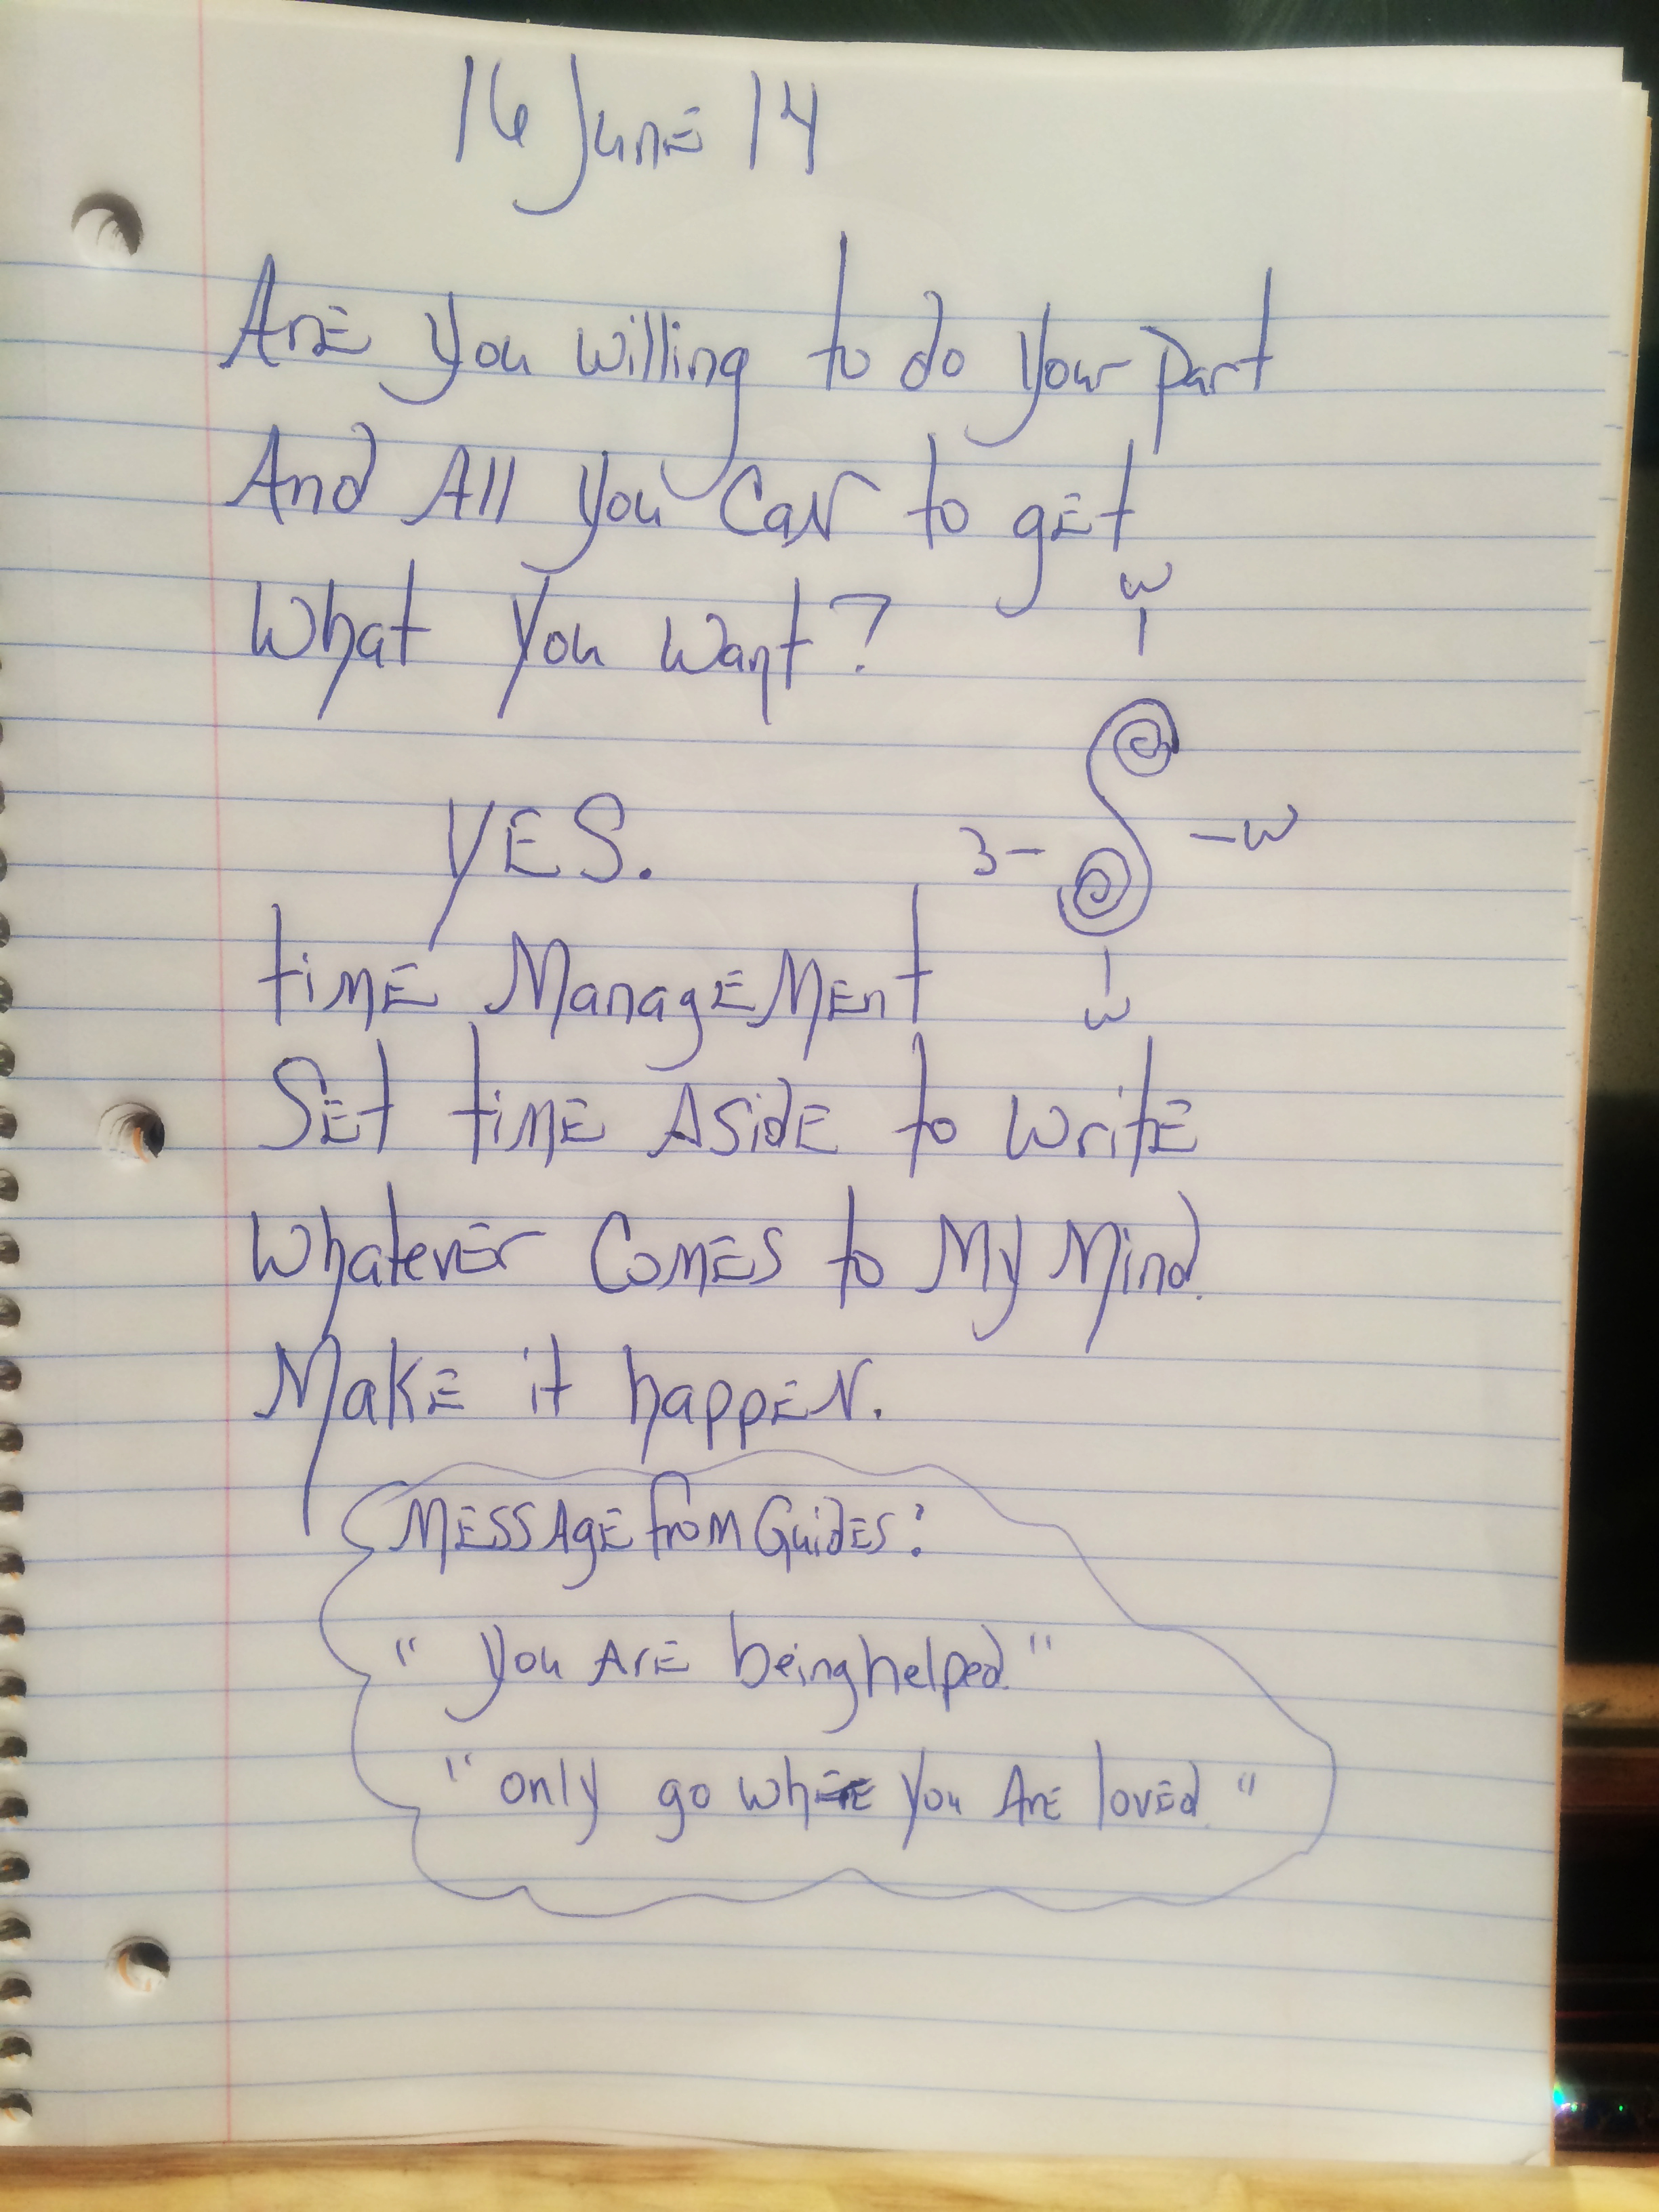 16 June 14
Are You Willing to do Your part
And All You Can to get
What You Want?
w
YES.
3- -w
time Management
w
Set time Aside to Write
Whatever Comes to My Mind.
Make it happen.
Message from Guides:
"You Are being helped."
"only go where You Are loved."